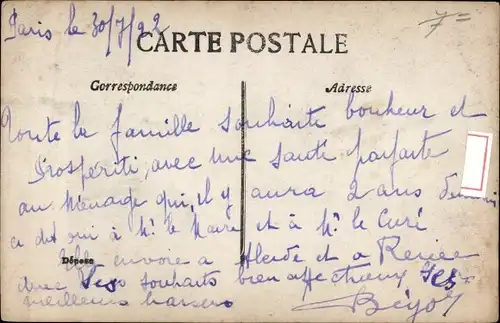 Paris le 30/7/22
7=
CARTE POSTALE
Correspondance
Adresse
Toute la famille souhaite bonheur et
Prospérité, avec une santé parfaite
au Ménage qui, il y aura 2 ans
a dit oui à Mr le Maire et à Mr le Curé
Dépose
envoie a et a Renée
avec souhaits bien affectueux
meilleurs baisers